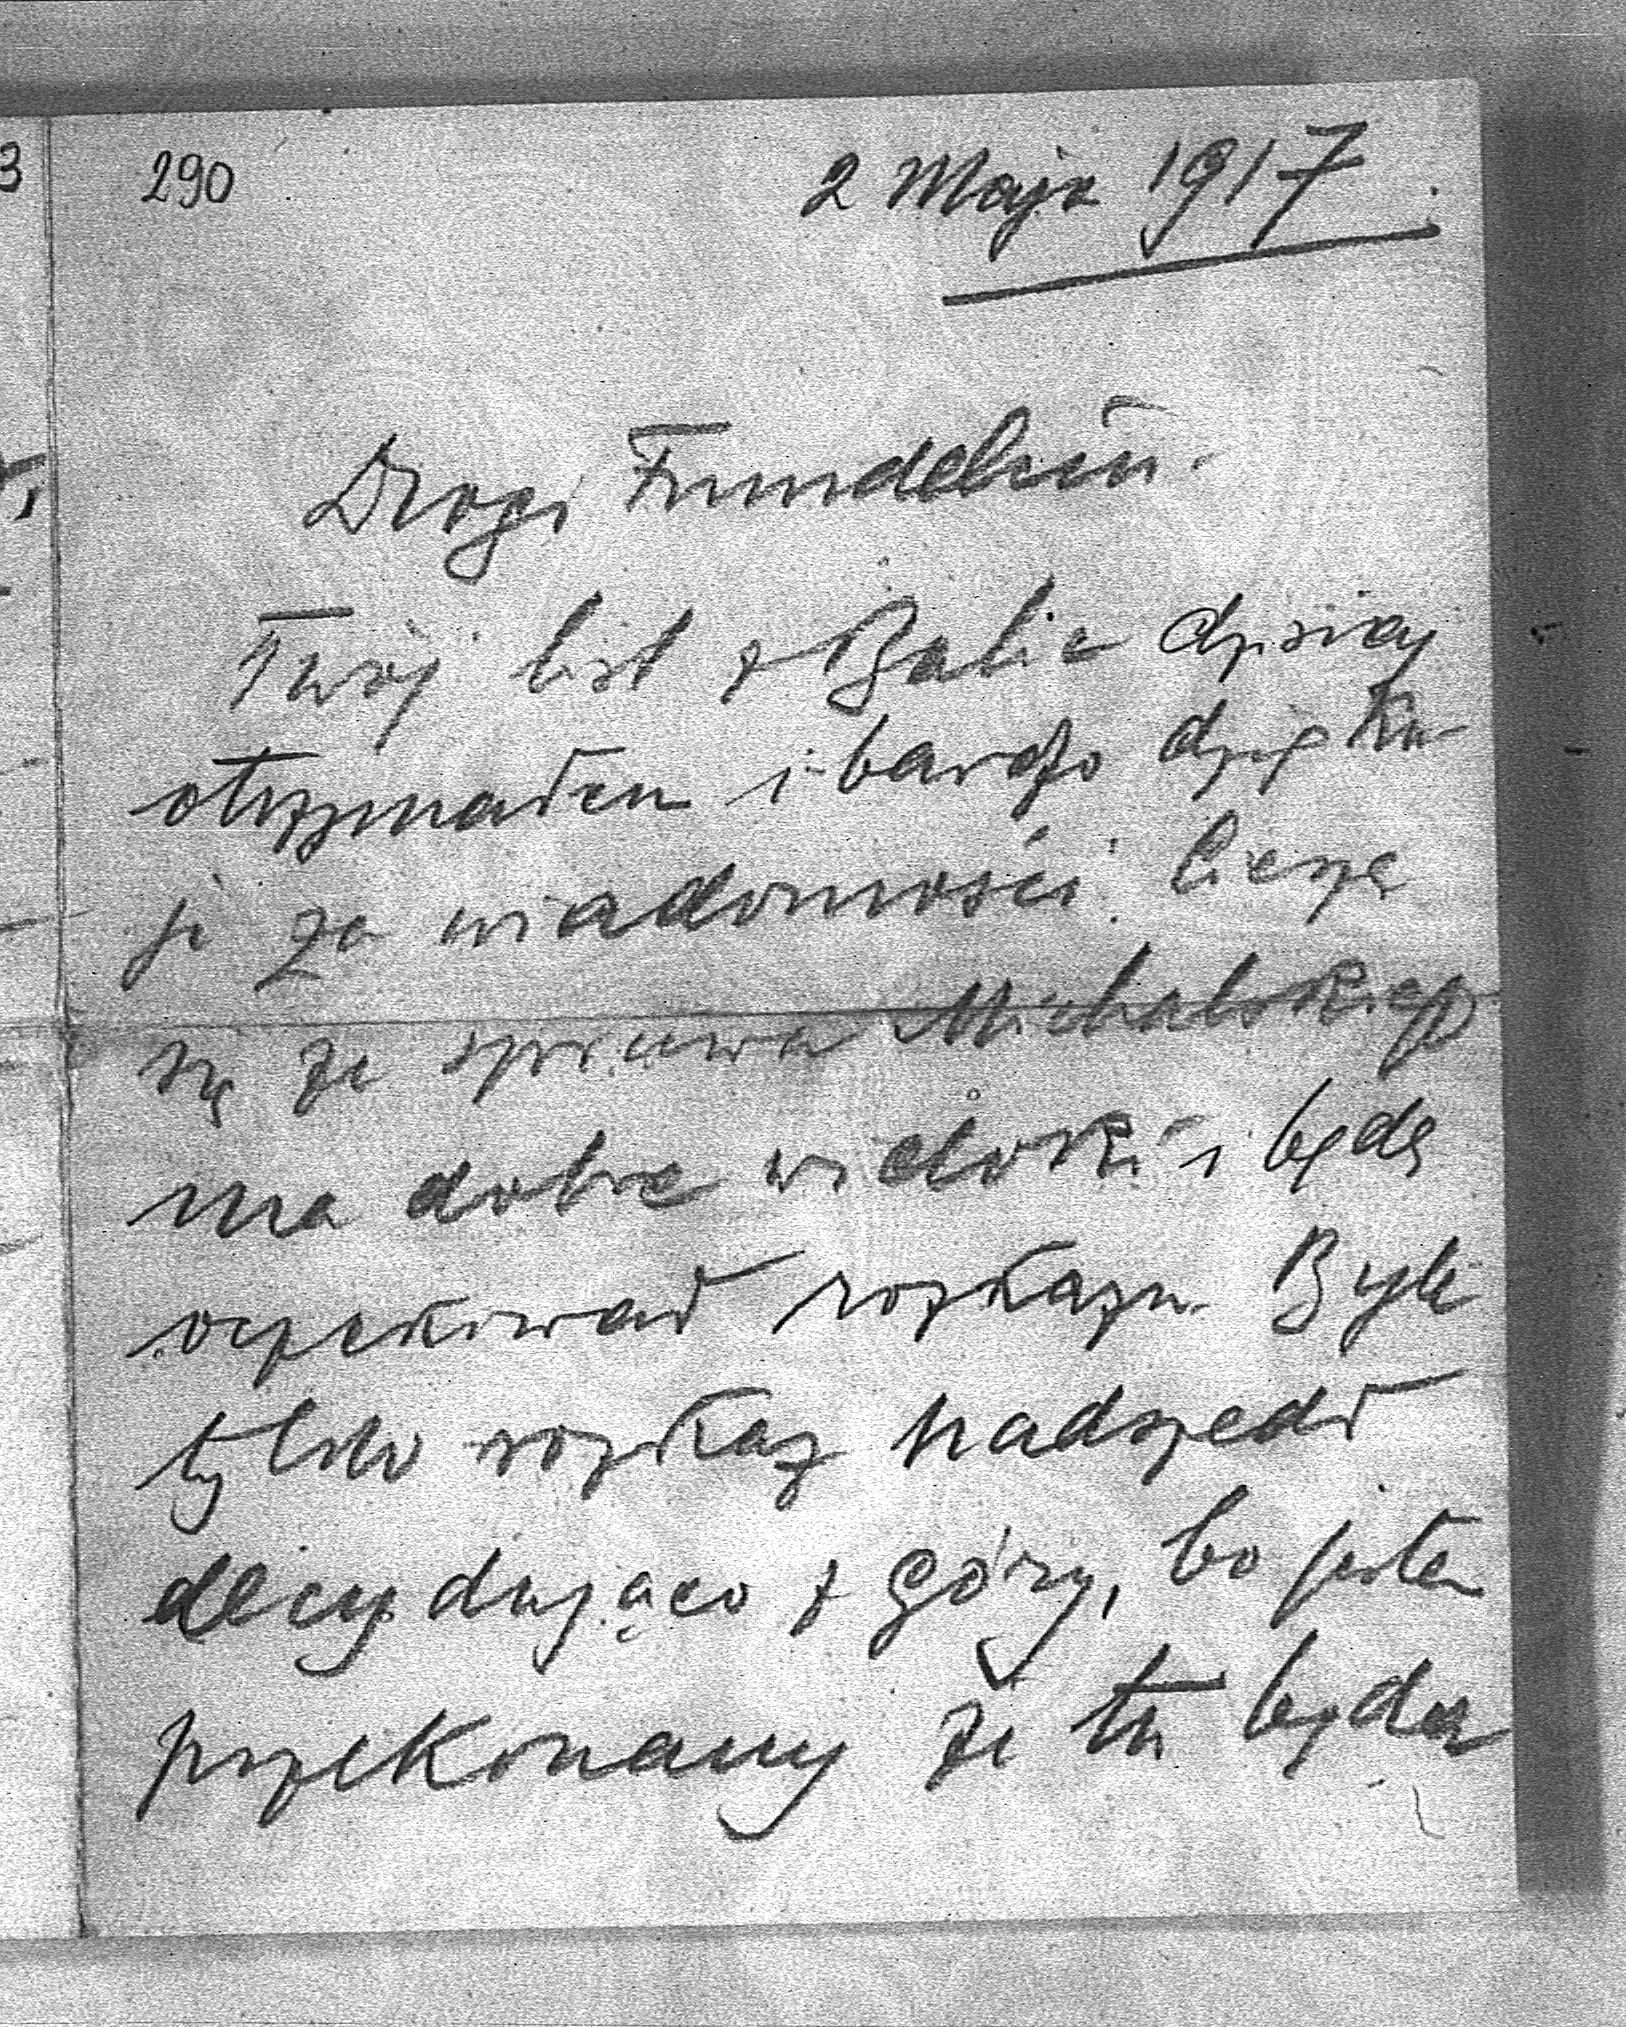 290
2 Maja 1917
Drogi
Twój list z Balic dzisiaj
otrzymałem i bardzo dzięku-
ję za wiadomości. Cieszę
się że sprawa Michalskiego
ma dobre widoki i będę
oczekiwał rozkazu. Byle
tylko rozkaz nadszedł
decydująco z góry, bo jestem
przekonany że tu będą